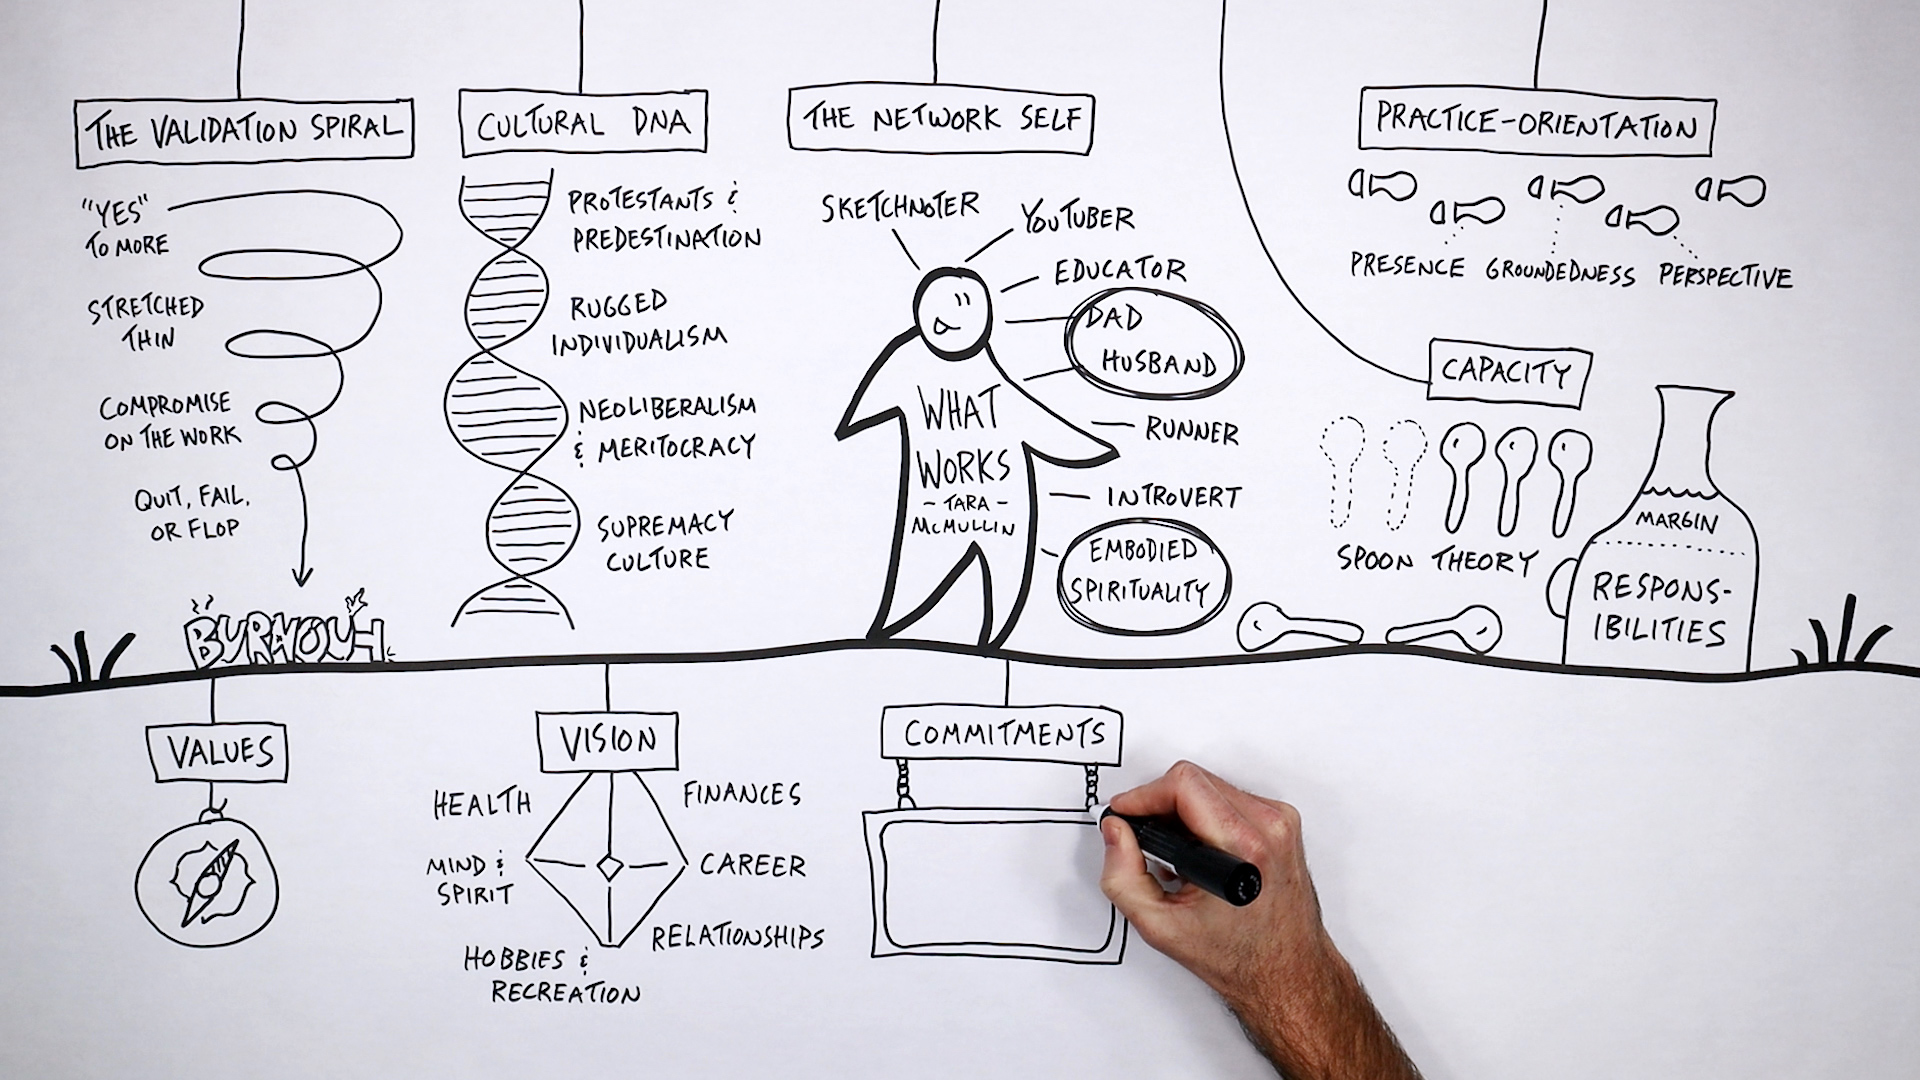 THE VALIDATION SPIRAL
"YES"
TO MORE
STRETCHED
THIN
COMPROMISE
ON THE WORK
QUIT, FAIL,
OR FLOP
BURNOUT
CULTURAL DNA
PROTESTANTS &
PREDESTINATION
RUGGED
INDIVIDUALISM
NEOLIBERALISM
& MERITOCRACY
SUPREMACY
CULTURE
THE NETWORK SELF
SKETCHNOTER
YOUTUBER
EDUCATOR
DAD
HUSBAND
RUNNER
INTROVERT
EMBODIED
SPIRITUALITY
WHAT
WORKS
- TARA -
McMULLIN
PRACTICE-ORIENTATION
PRESENCE GROUNDEDNESS PERSPECTIVE
CAPACITY
SPOON THEORY
MARGIN
RESPONS-
IBILITIES
VALUES
VISION
HEALTH
FINANCES
MIND &
SPIRIT
CAREER
RELATIONSHIPS
HOBBIES &
RECREATION
COMMITMENTS